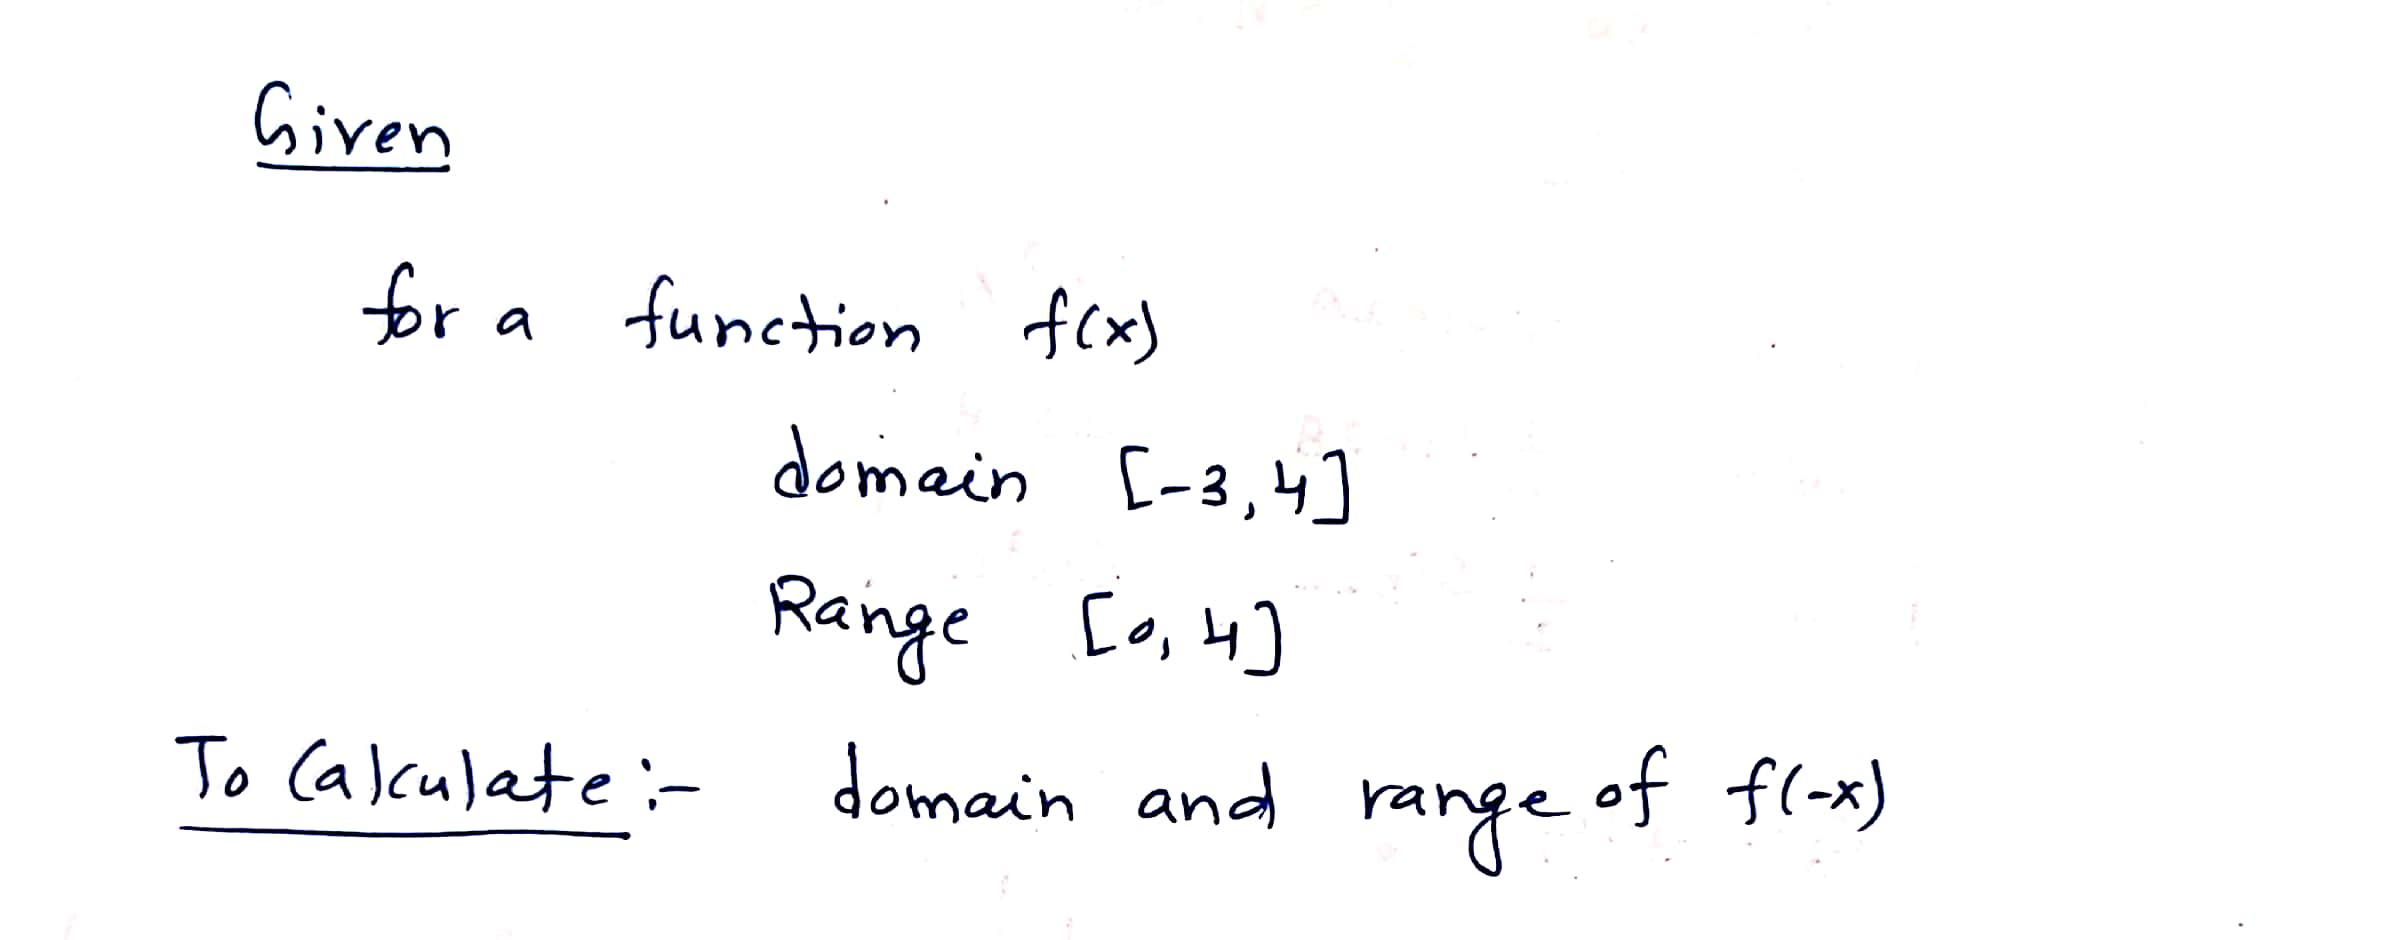 Given
for a function f(x)
domain [-3,4]
Range [0,4]
To Calculate:- domain and range of f(-x)